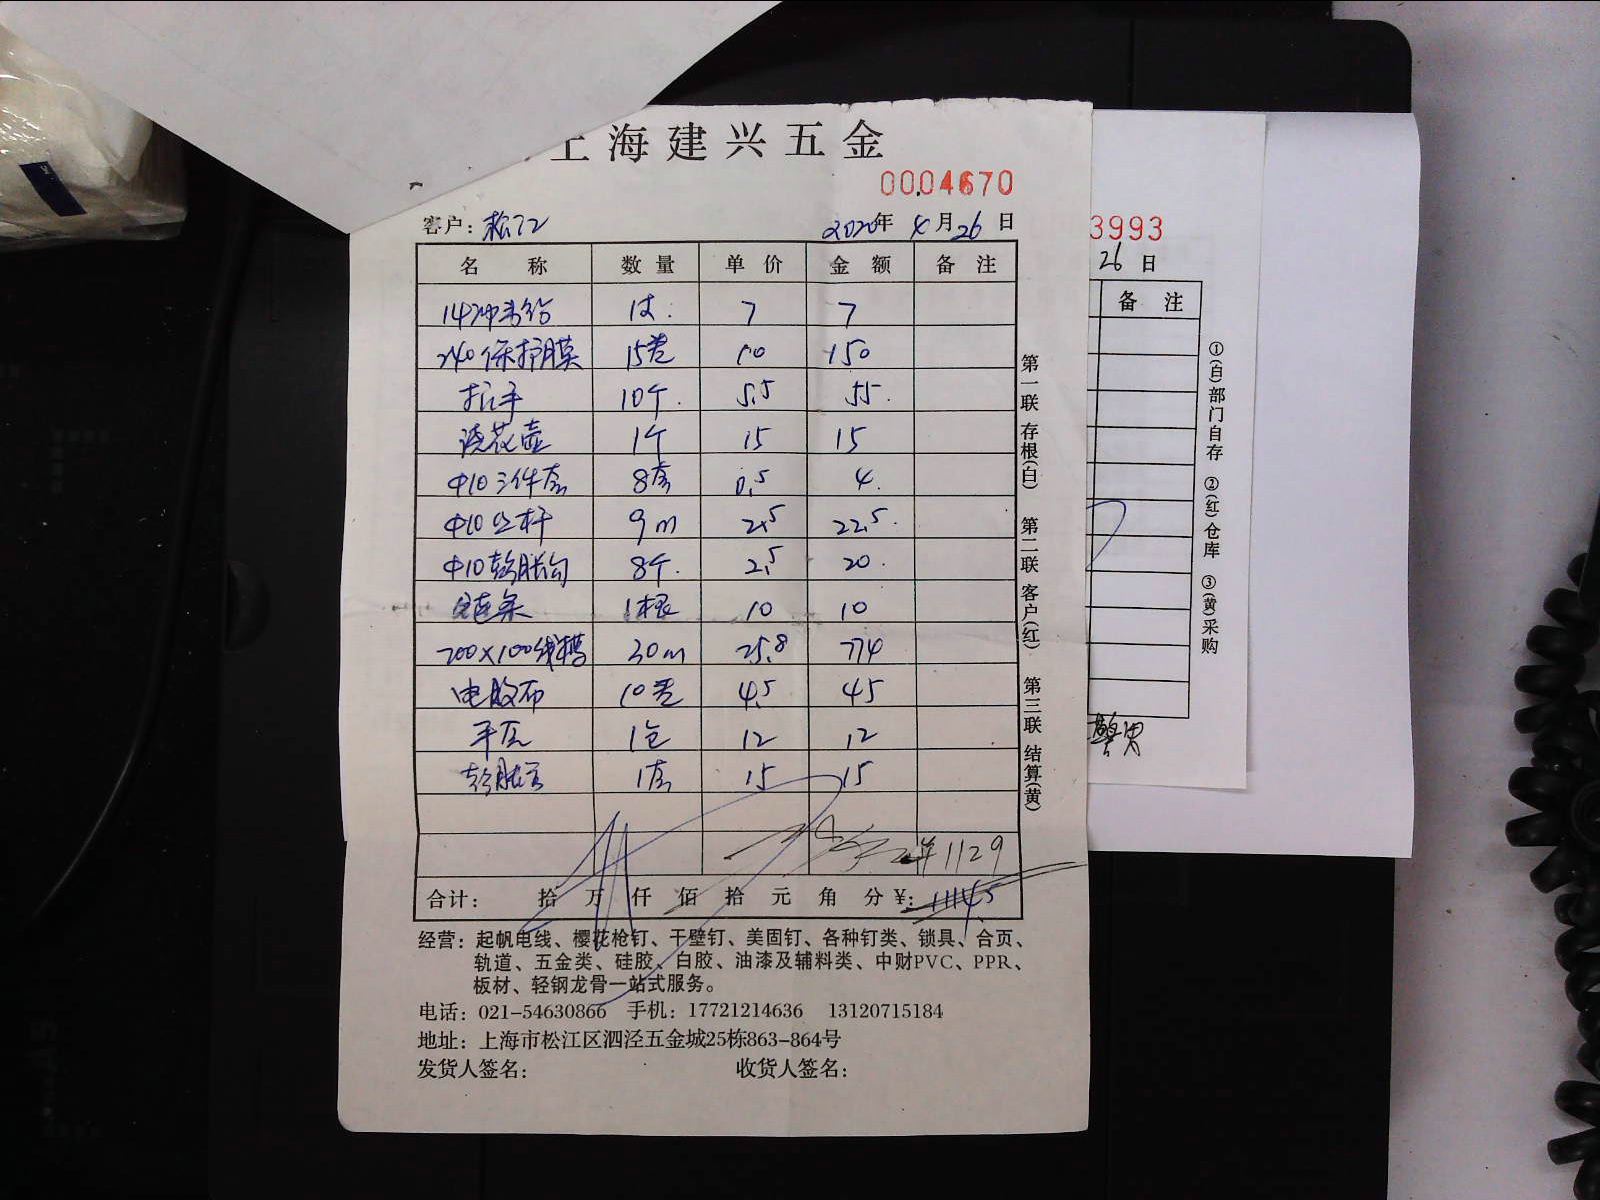 上海建兴五金
0004670
客户: 松江 2020年 4月26日
名 称 数 量 单 价 金 额 备 注
14冲击钻 1支 7 7
240保护膜 15卷 10 150
扒手 10个 5.5 55
浇花壶 1个 15 15
Φ10三件套 8套 0.5 4
Φ10丝杆 9m 2.5 22.5
Φ10膨胀勾 8个 2.5 20
链条 1根 10 10
200×100线槽 30m 25.8 774
电胶布 10卷 4.5 45
平瓦 1包 12 12
膨胀管 1套 15 15
1129
合计: 拾 万 仟 佰 拾 元 角 分 ¥:
经营: 起帆电线、樱花枪钉、干壁钉、美固钉、各种钉类、锁具、合页、
轨道、五金类、硅胶、白胶、油漆及辅料类、中财PVC、PPR、
板材、轻钢龙骨一站式服务。
电话: 021-54630866 手机: 17721214636 13120715184
地址: 上海市松江区泗泾五金城25栋863-864号
发货人签名: 收货人签名:
第一联 存根(白) 第二联 客户(红) 第三联 结算(黄)
3993
26日
备 注
①(白)部门自存 ②(红)仓库 ③(黄)采购